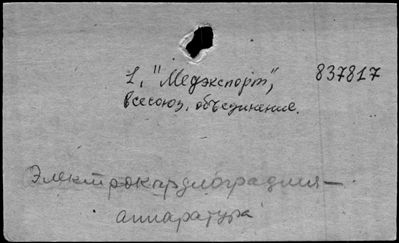 1, "Медэкспорт", 837817
Всесоюз. объединение.
Электрокардиография—
аппаратура